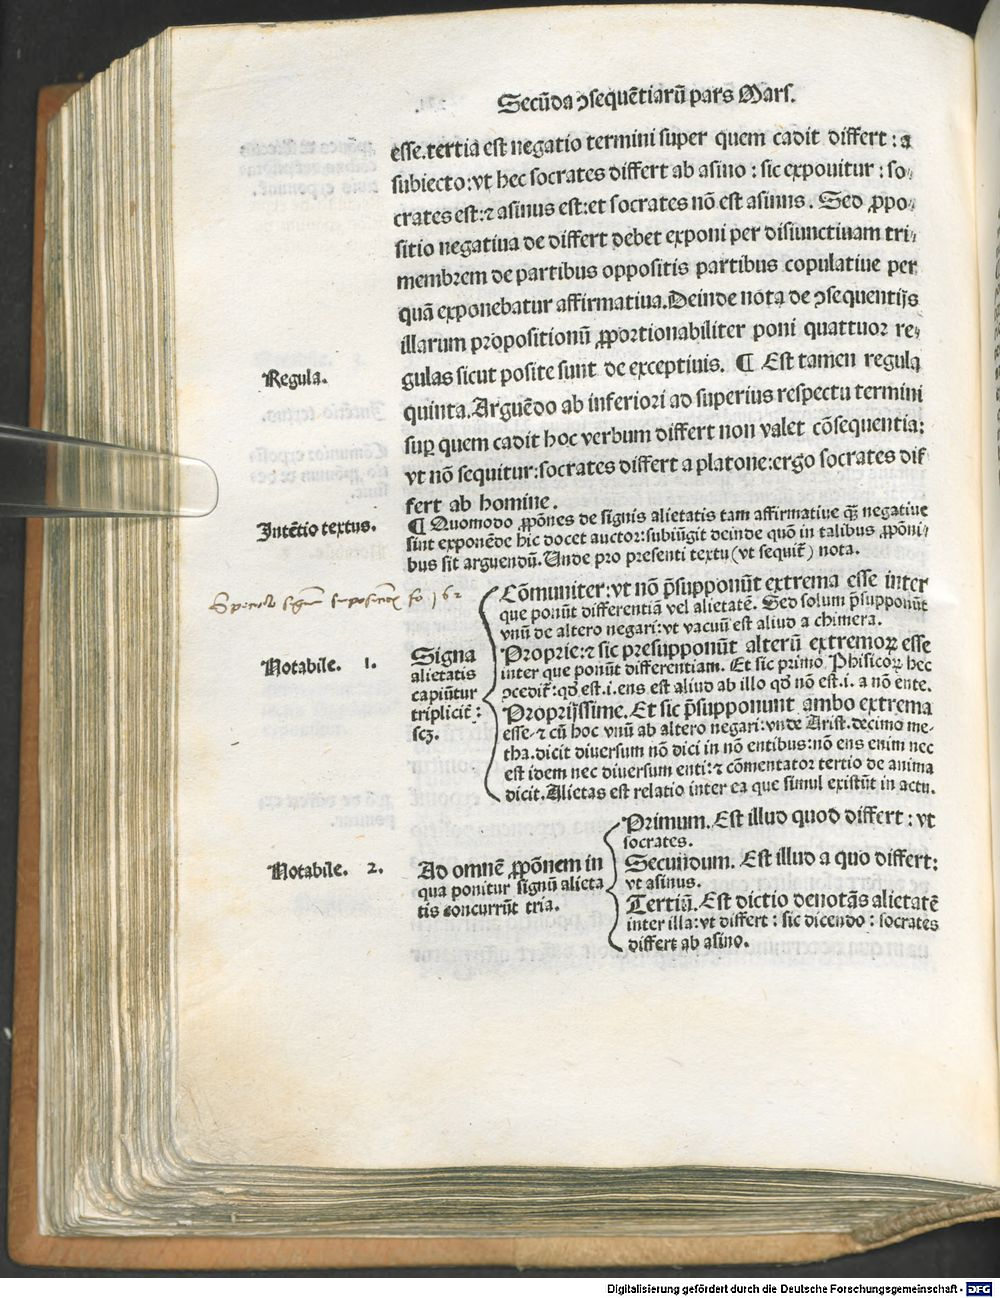 Secūda ↄsequētiarū pars Mars.
esse.tertia est negatio termini super quem cadit differt : a
subiecto:vt hec socrates differt ab asino : sic exponitur : so⸗
crates est:⁊ asinus est:et socrates nō est asinus. Sed ꝓpo⸗
sitio negatiua de differt debet exponi per disiunctiuam tri⸗
membrem de partibus oppositis partibus copulatiue per
quā exponebatur affirmatiua.Deinde nota de ↄsequentijs
illarum propositionū ꝓportionabiliter poni quattuor re⸗
Regula.
gulas sicut posite sunt de exceptiuis. ¶ Est tamen regula
quinta.Arguēdo ab inferiori ad superius respectu termini
suꝑ quem cadit hoc verbum differt non valet cōsequentia:
vt nō sequitur:socrates differt a platone:ergo socrates dif
fert ab homine.
Intētio textus.
¶ Quomodo ꝓpōnes de signis alietatis tam affirmatiue qꝫ negatiue
sint exponēde hic docet auctor:subiūgit deinde quō in talibus ꝓpōni⸗
bus sit arguendū.Unde pro presenti textu (vt sequit̄) nota.
fo 162
Notabile. 1.
Signa
alietatis
capiūtur
triplicit̄ :
scꝫ.
Cōmuniter:vt nō p̄supponūt extrema esse inter
que ponūt differentiā vel alietatē. Sed solum p̄supponūt
vnū de altero negari:vt vacuū est aliud a chimera.
Proprie:⁊ sic presupponūt alterū extremoꝝ esse
inter que ponūt differentiam. Et sic primo Phisicoꝝ hec
ↄcedit̄:qd est.i.ens est aliud ab illo qd nō est.i. a nō ente.
Proprijssime. Et sic p̄supponunt ambo extrema
esse ⁊ cū hoc vnū ab altero negari:vnde Arist.decimo me⸗
tha.dicit diuersum nō dici in nō entibus:nō ens enim nec
est idem nec diuersum enti:⁊ cōmentator tertio de anima
dicit.Alietas est relatio inter ea que simul existūt in actu.
Notabile. 2.
Ad omnē ꝓpōnem in
qua ponitur signū alieta
tis concurrūt tria.
Primum. Est illud quod differt : vt
socrates.
Secundum. Est illud a quo differt:
vt asinus.
Tertiū. Est dictio denotās alietatē
inter illa:vt differt : sic dicendo : socrates
differt ab asino.
Digitalisierung gefördert durch die Deutsche Forschungsgemeinschaft - DFG